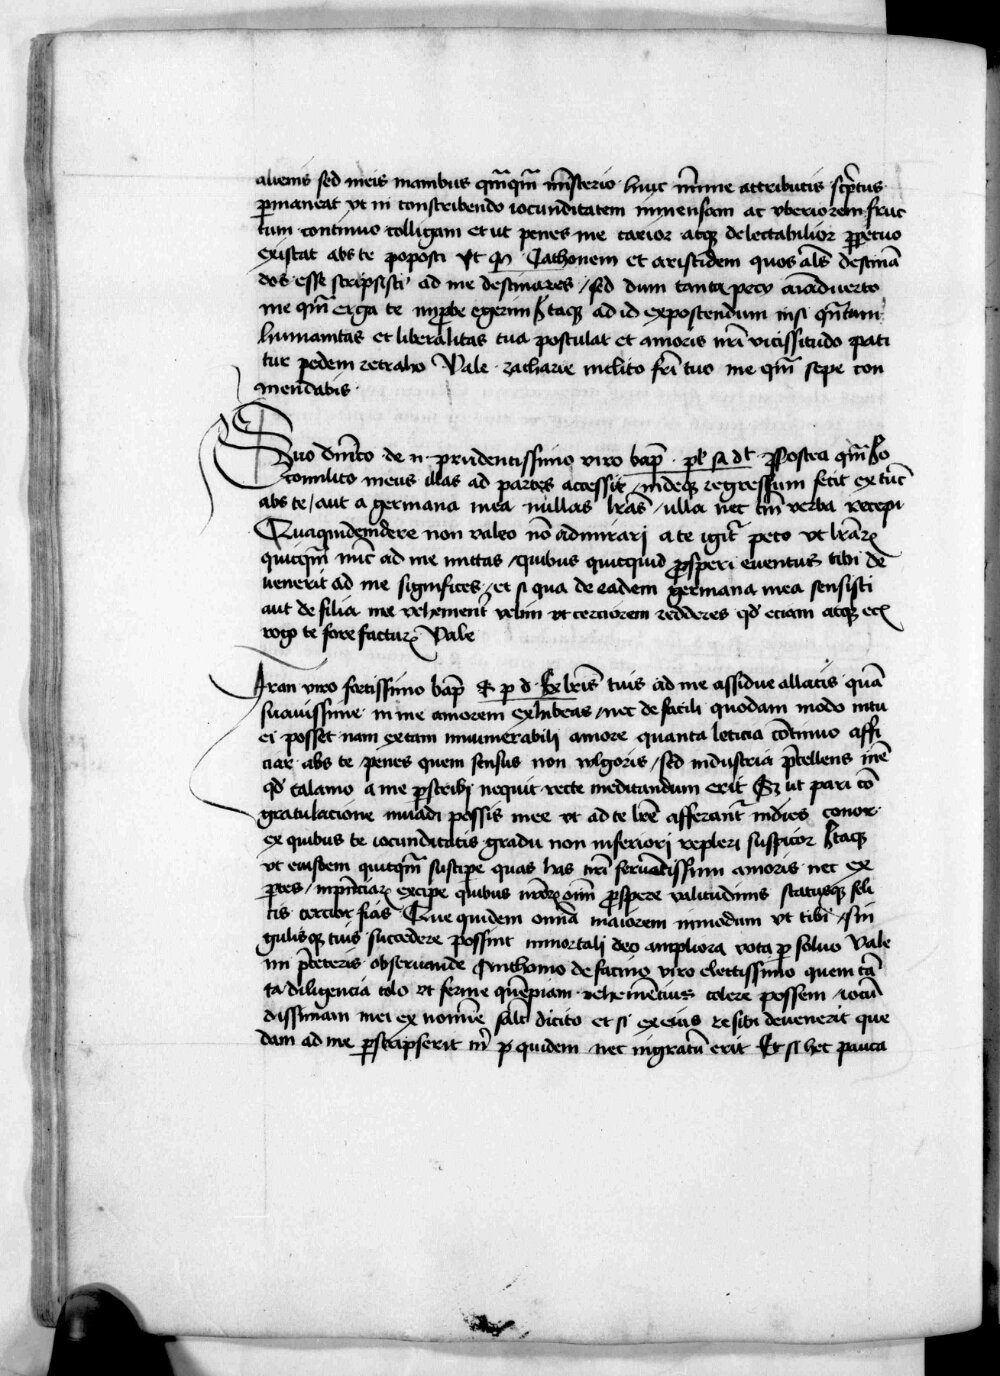 alienis sed meis manibus qm̄qm̄ mīsterio huic mīme attributis scp̄tus
ꝑmaneat vt in conscribendo iocunditatem immensam ac vberiorem fruc
tum continuo colligam et ut penes me carior atqꝫ delectabilior ꝑpetuo
existat abs te poposci Vt Cathonem et aristidem quos al̄s destinā
dos esse scripsisti ad me destinares / sed dum tanta peto aīaduerto
me qm̄ erga te improbe egerim Itaqꝫ ad id expostcendum nisi qn̄tum
humanitas et liberalitas tua postulat et amoris nr̄i vicissitudo pati
tur pedem retraho Vale zacharie inclito fr̄i tuo me qm̄ sepe con
mendabis
Suo dm̄co de n prudentissimo viro bap̄ . pl̄ sa dt̄ . Postea qm̄
comilito meus illas ad partes accessit / indeqꝫ regressum fecit ex tūc
abs te / aut a germana mea nullas lr̄as / ulla nec tm̄ verba recepi
Qua quidem de re non valeo nō admirari a te igit̄ peto vt lr̄aꝝ
quicqm̄ nūc ad me mittas / quibus quicquid ꝓsperi euentus tibi de
uenerit ad me significes / et si qua de eadem germana mea sensisti
aut de filia me vehement̄ velim vt cerciorem redderes qd̄ eciam atqꝫ ecꝫ
rogo te fore facturꝝ Vale
Fran viro fortissimo bap̄ p d Ex lr̄is tuis ad me assidue allatis quā
suauissime in me amorem exhibeas / nec de facili quodam modo intu
ei posset nam ex tam innumerabili amore quanta leticia cōtinuo affi
ciar abs te / penes quem sensus non vlgoris / sed industria p̄cellens inē
qd̄ calamo a me ꝑscribi nequit recte meditandum erit Sꝫ ut pari cō
gratulacione inuadi possis mee vt ad te lr̄e afferant̄ indies conor
ex quibus te iocunditatis gradu non inferiori repleri suspicor Itaqꝫ
vt eiusdem quicqm̄ suscipe quas has nr̄i feruētissimi amoris nec ex
ꝑtes / excipe quibus ꝓspere valitudinis statusqꝫ feli
cis cercior fias Que quidem omīa maiorem inmodum vt tibi / sin
gulisqꝫ tuis succedere possint inmortali deo ampliora vota ꝑsoluo Vale
mi p̄ceteris obseruande Anthonio de facino viro electissimo quem tā
ta diligencia colo vt ferme quēpiam vehemēcius colere possem / iocū
dissimam mei ex nomīe salt̄ dicito et si ex eius re sibi deuenerit que
dam ad me ꝑscripserit quidem nec ingratū erit Et si hec pauca